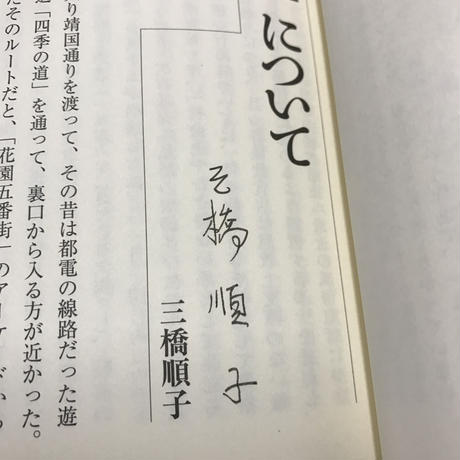 について
三橋順子
三橋順子
り靖国通りを渡って、その昔は都電の線路だった遊
「四季の道」を通って、裏口から入る方が近かった。
そのルートだと、「花園五番街」のアーケード